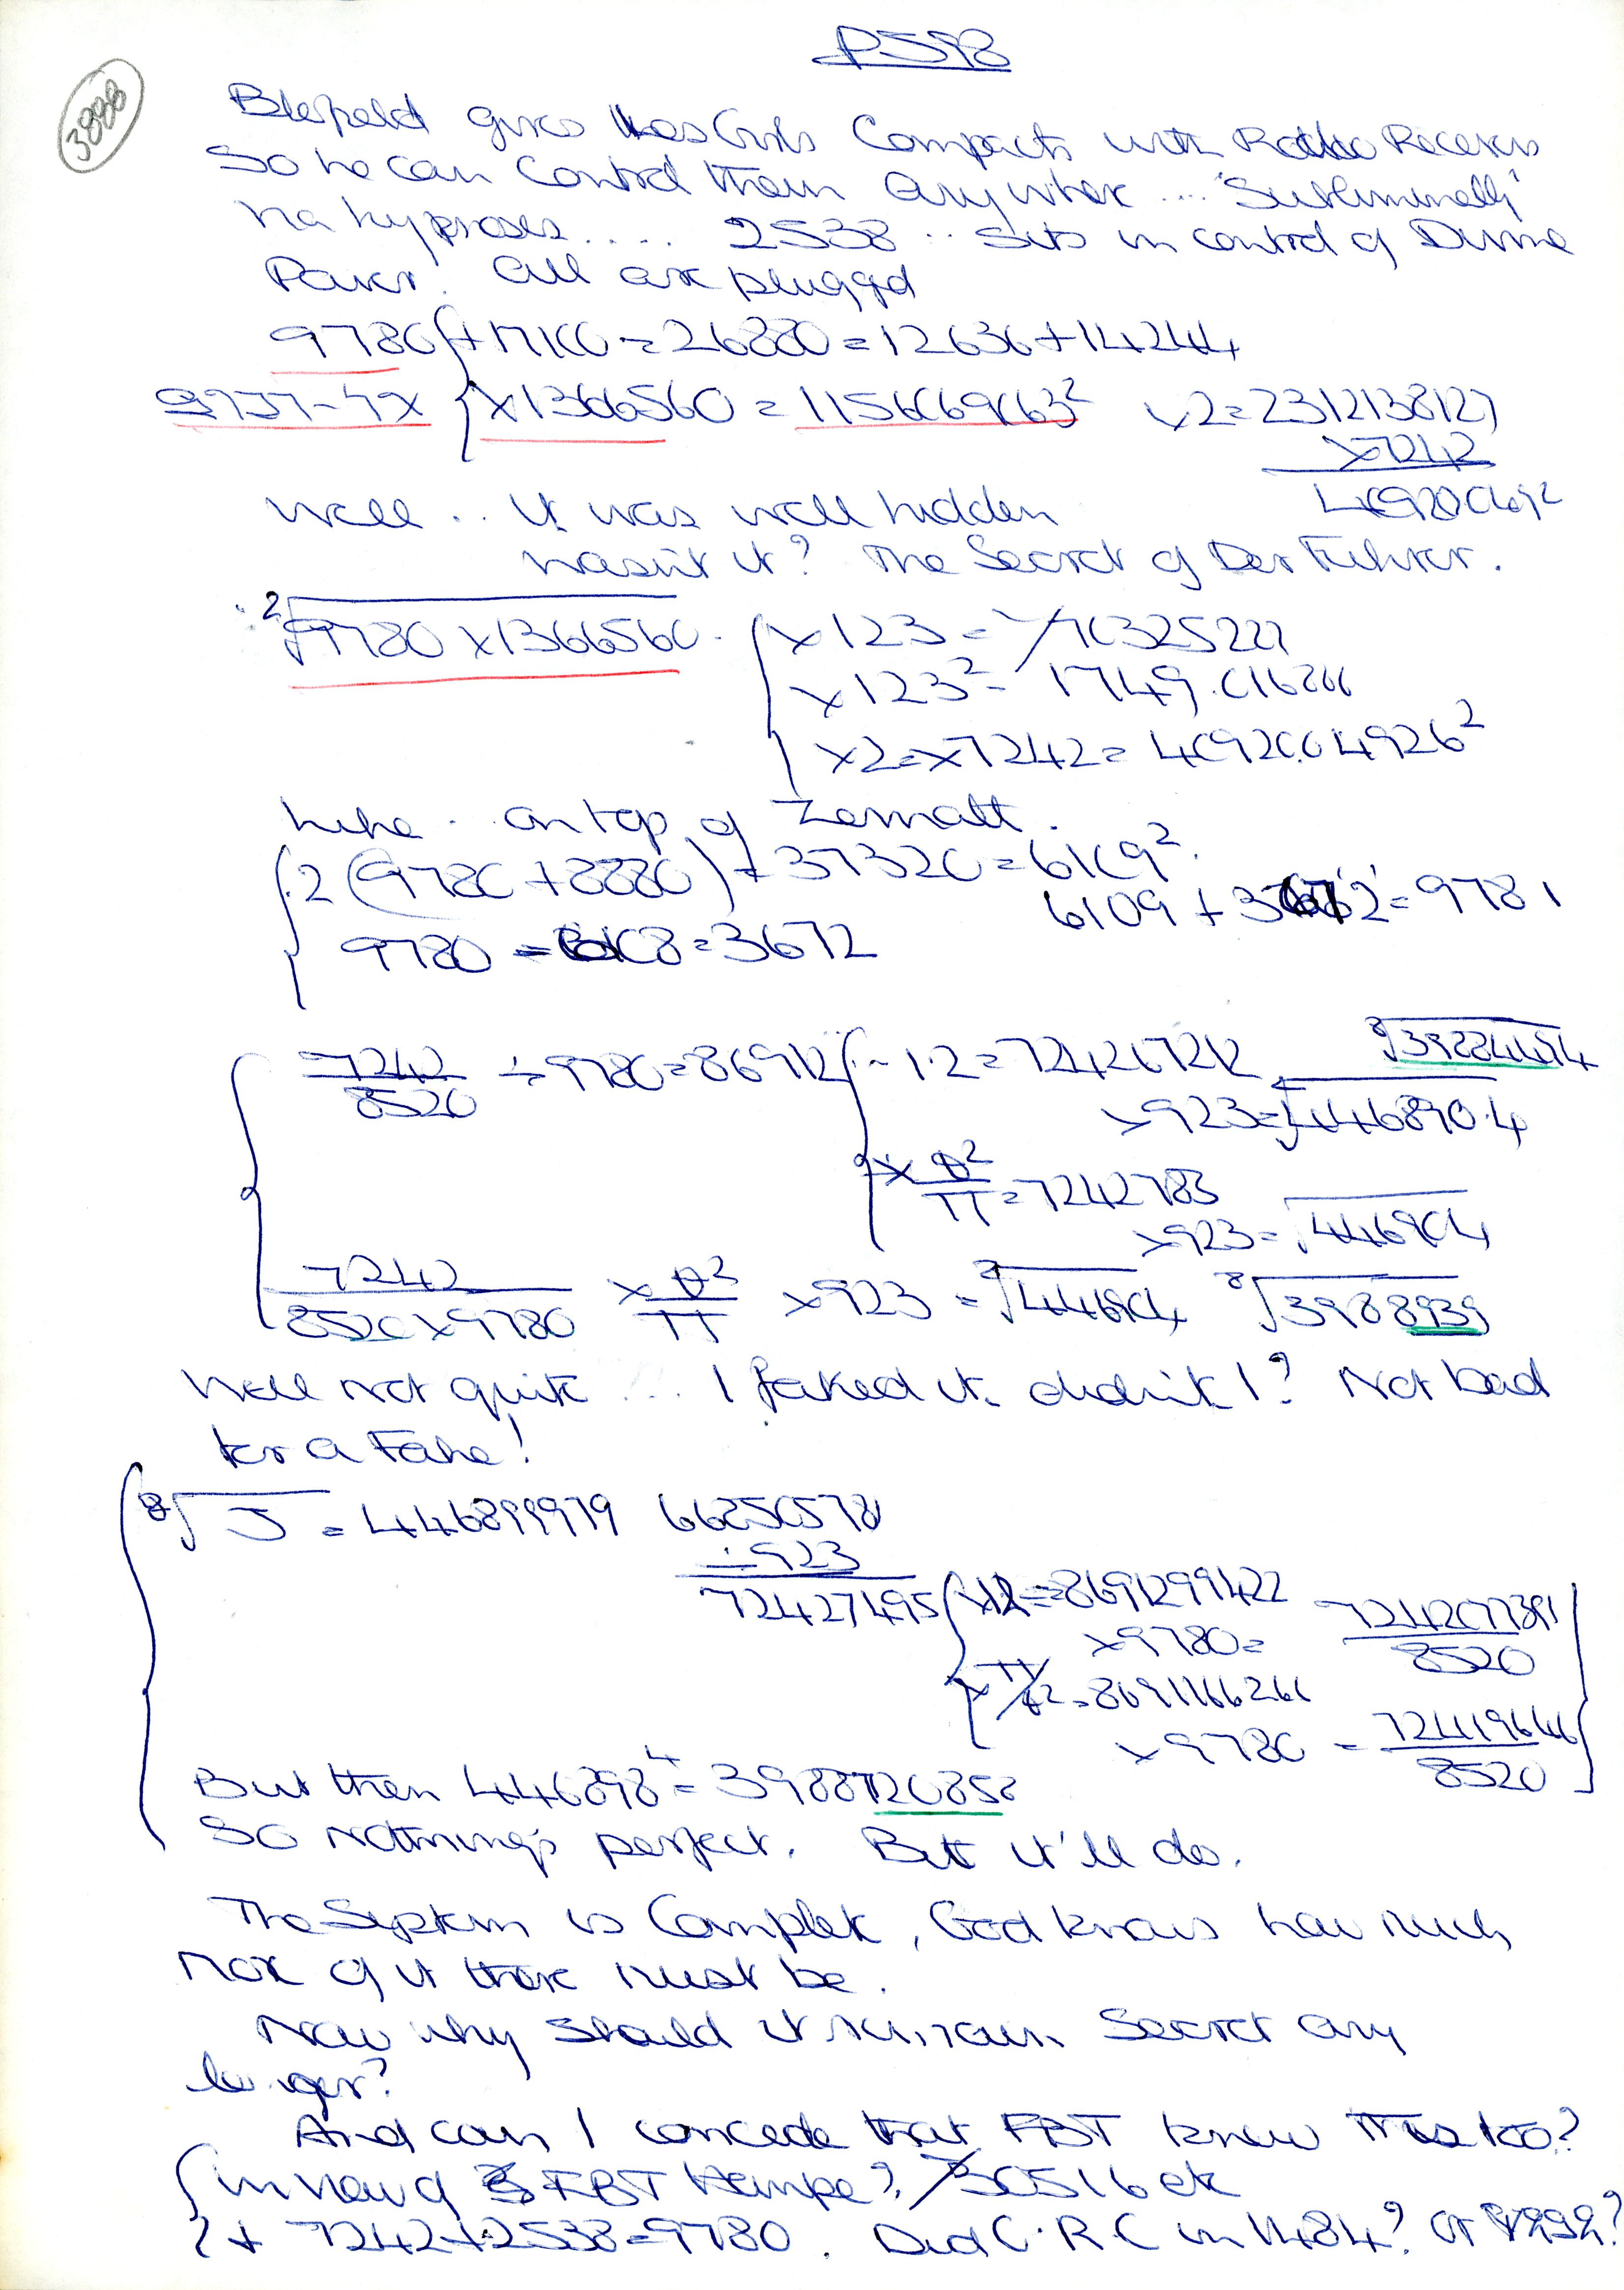 P598
3888
Blofeld gives his Girls Compacts with Radio Receivers
So he can Control them Anywhere ... 'Subliminally'
via hypnoses .... 2538 .. sits in control of Divine
Power! All are plugged
9780 { + 17100 = 26880 = 12636 + 14244
{ x 1366560 = 1156069063² x2 = 2312138127
x7242
Well .. it was well hidden
wasn't it? The Secret of Der Fuhrer.
²√9780 x 1366560 { x 123 =
x 123² = 1749.016206
x2 = x7242 =
Like .. on top of Zermatt.
2 (9780 + 8880) + 37320 = 6109².
9780 - 6108 = 3672
6109 + 3672 = 9781
7242/8520 ÷ 9780 = 86912 { - 1.2 = 72426
x923 = √446890.4
x /π = 7242783
x923 = √446904
7242/8520 x 9780 x /π x 923 = √446904 ⁸√3988939
Well not quite ... I faked it. didn't I? Not bad
for a Fake!
⁸√5 = 446899979 66850578
÷ 923
72427495 { x12 = 8691299422
x9780 = /8520
= 8691166266
x9780 = /8520
But then 446898⁴ = 3988720858
So nothing's perfect. But it'll do.
The System is Complete, God knows how much
more of it there must be.
Now why should it remain Secret any
longer?
And can I concede that FBT knew this too?
in view of FBT Hempe? 30516 etc
+ 7242 + 2538 = 9780. Did C.R.C in 1484?